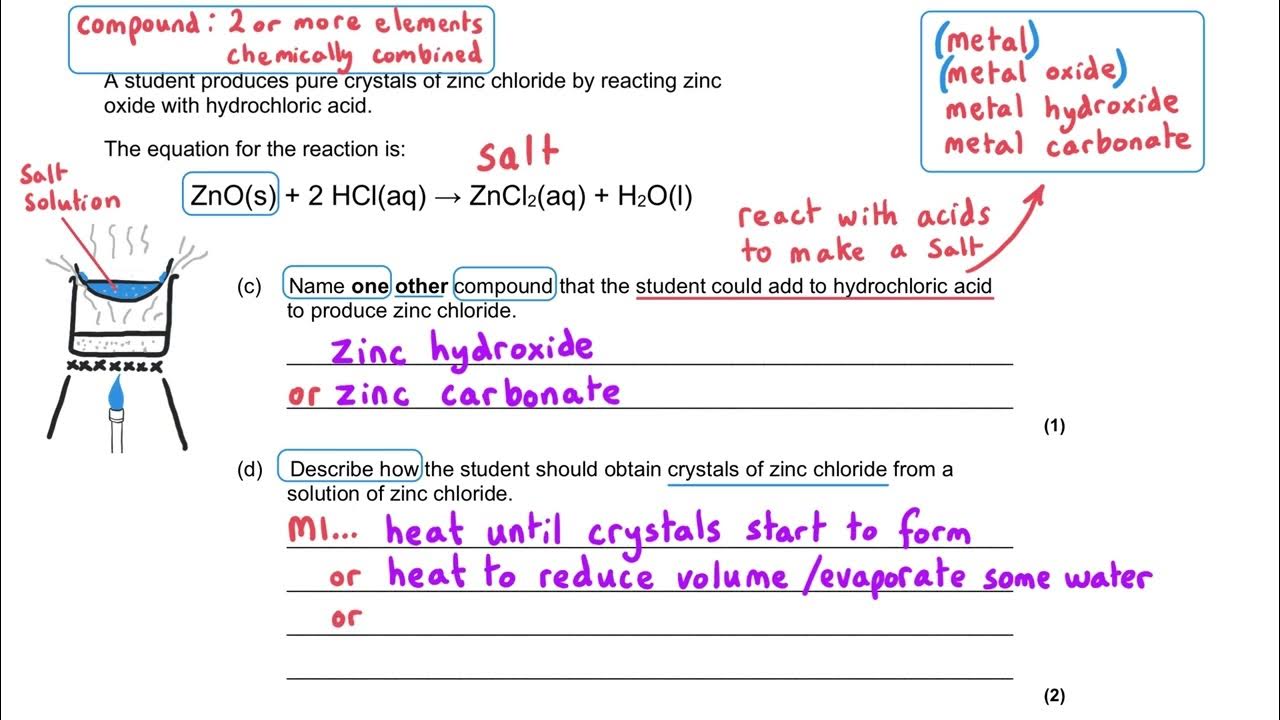 compound: 2 or more elements
chemically combined
A student produces pure crystals of zinc chloride by reacting zinc
oxide with hydrochloric acid.
(metal)
(metal oxide)
metal hydroxide
metal carbonate
The equation for the reaction is:
salt
Salt
Solution
ZnO(s) + 2 HCl(aq) → ZnCl₂(aq) + H₂O(l)
react with acids
to make a salt
(c) Name one other compound that the student could add to hydrochloric acid
to produce zinc chloride.
zinc hydroxide
or zinc carbonate
(1)
(d) Describe how the student should obtain crystals of zinc chloride from a
solution of zinc chloride.
M1... heat until crystals start to form
or heat to reduce volume/evaporate some water
or
(2)